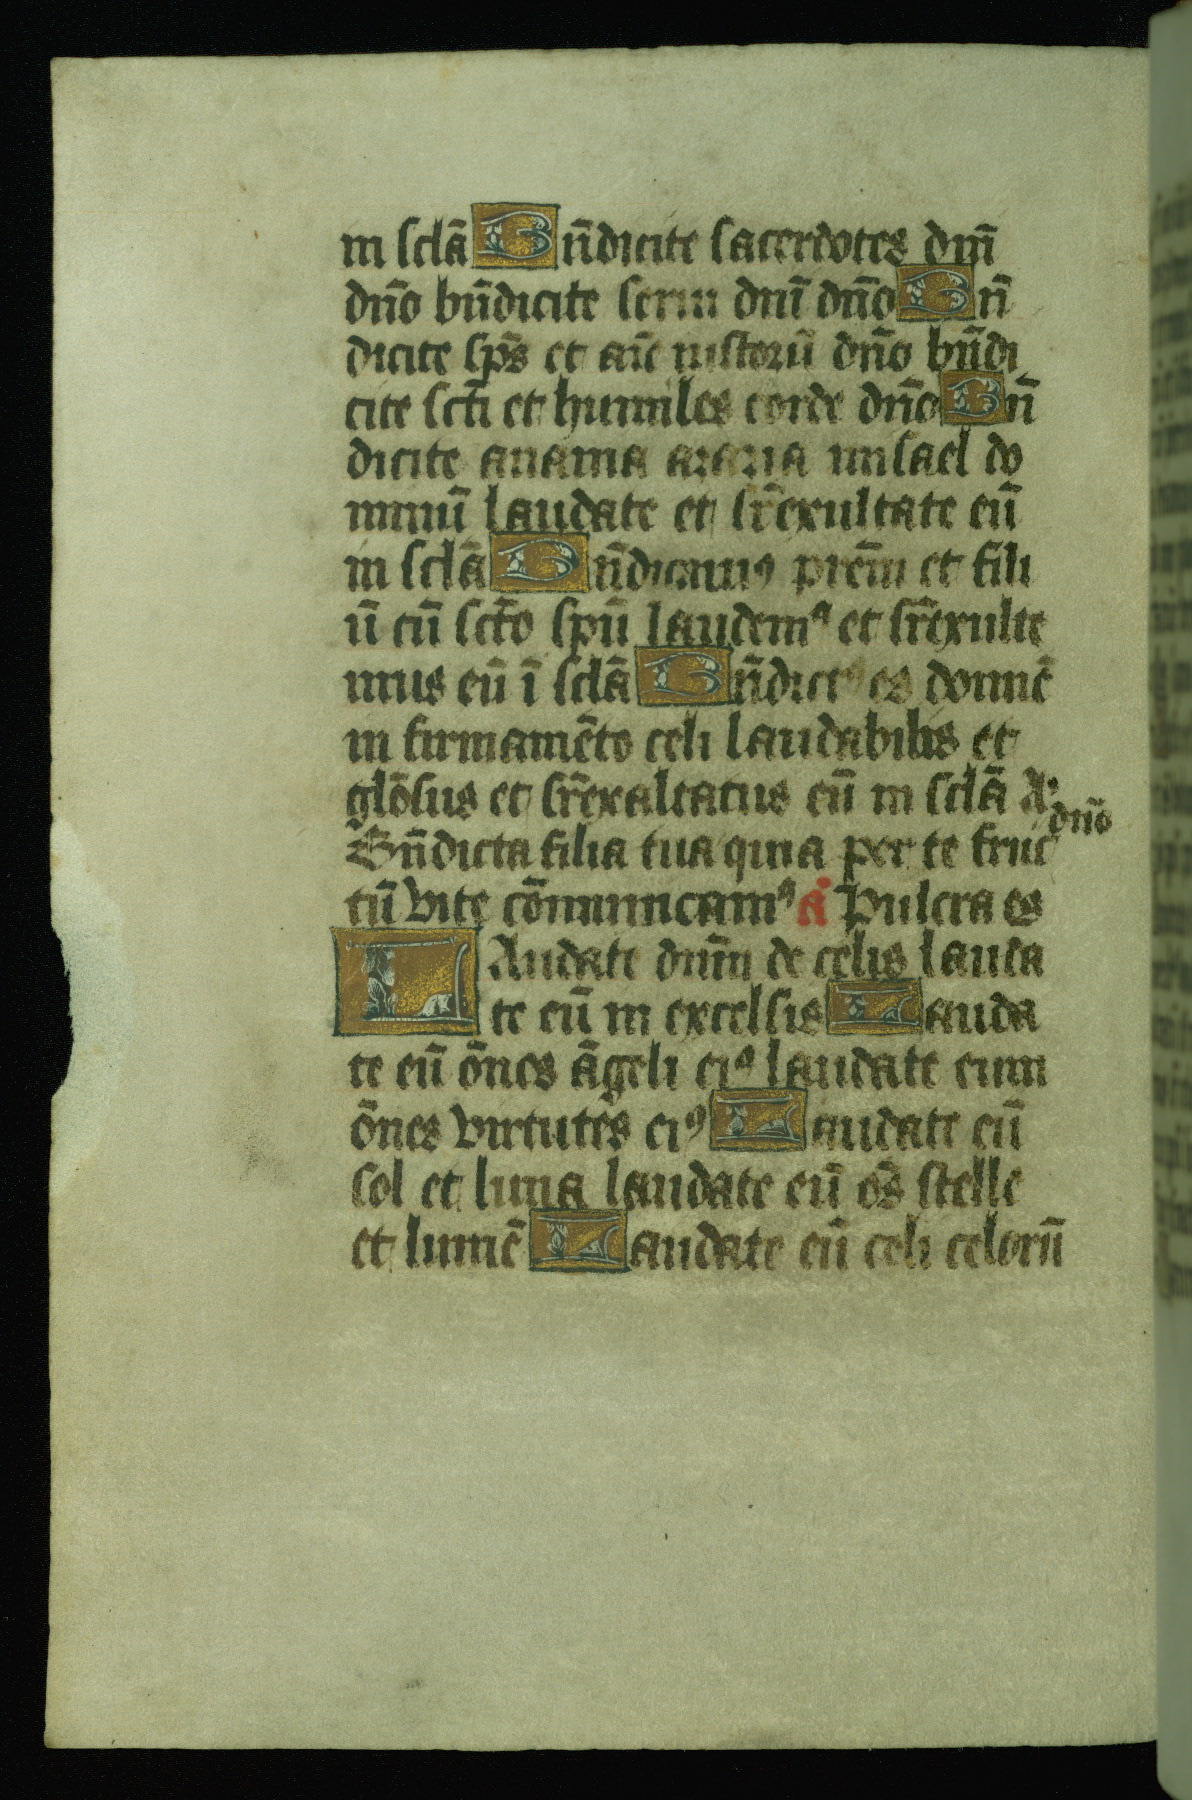 in sclā Bn̄dicite sacerdotes dnī
dn̄o bn̄dicite serui dnī dn̄o Bn̄
dicite sp̄s et aīe iustorū dn̄o bn̄di
cite scti̅ et humiles corde dn̄o Bn̄
dicite anania azaria misael do
minū laudate et sr̄exultate eū
in sclā Bn̄dicamꝰ prēm et fili
ū cū sctō spū laudemꝰ et sr̄exulte
mus eū ī sclā Bn̄dictꝰ es dominē
in firmamēto celi laudabilis et
glōsus et sr̄exaltatus eū in sclā A.
dn̄o
Bn̄dicta filia tua quia per te fruc
tū vite cōmunicamꝰ a Pulcra es
LAudate dnm̄ de celis lauda
te eū in excelsis Lauda
te eū ōnes āgeli eiꝰ laudate eum
ōnes virtutes eiꝰ Laudate eū
sol et luna laudate eū oēs stelle
et lumē Laudate eū celi celorū